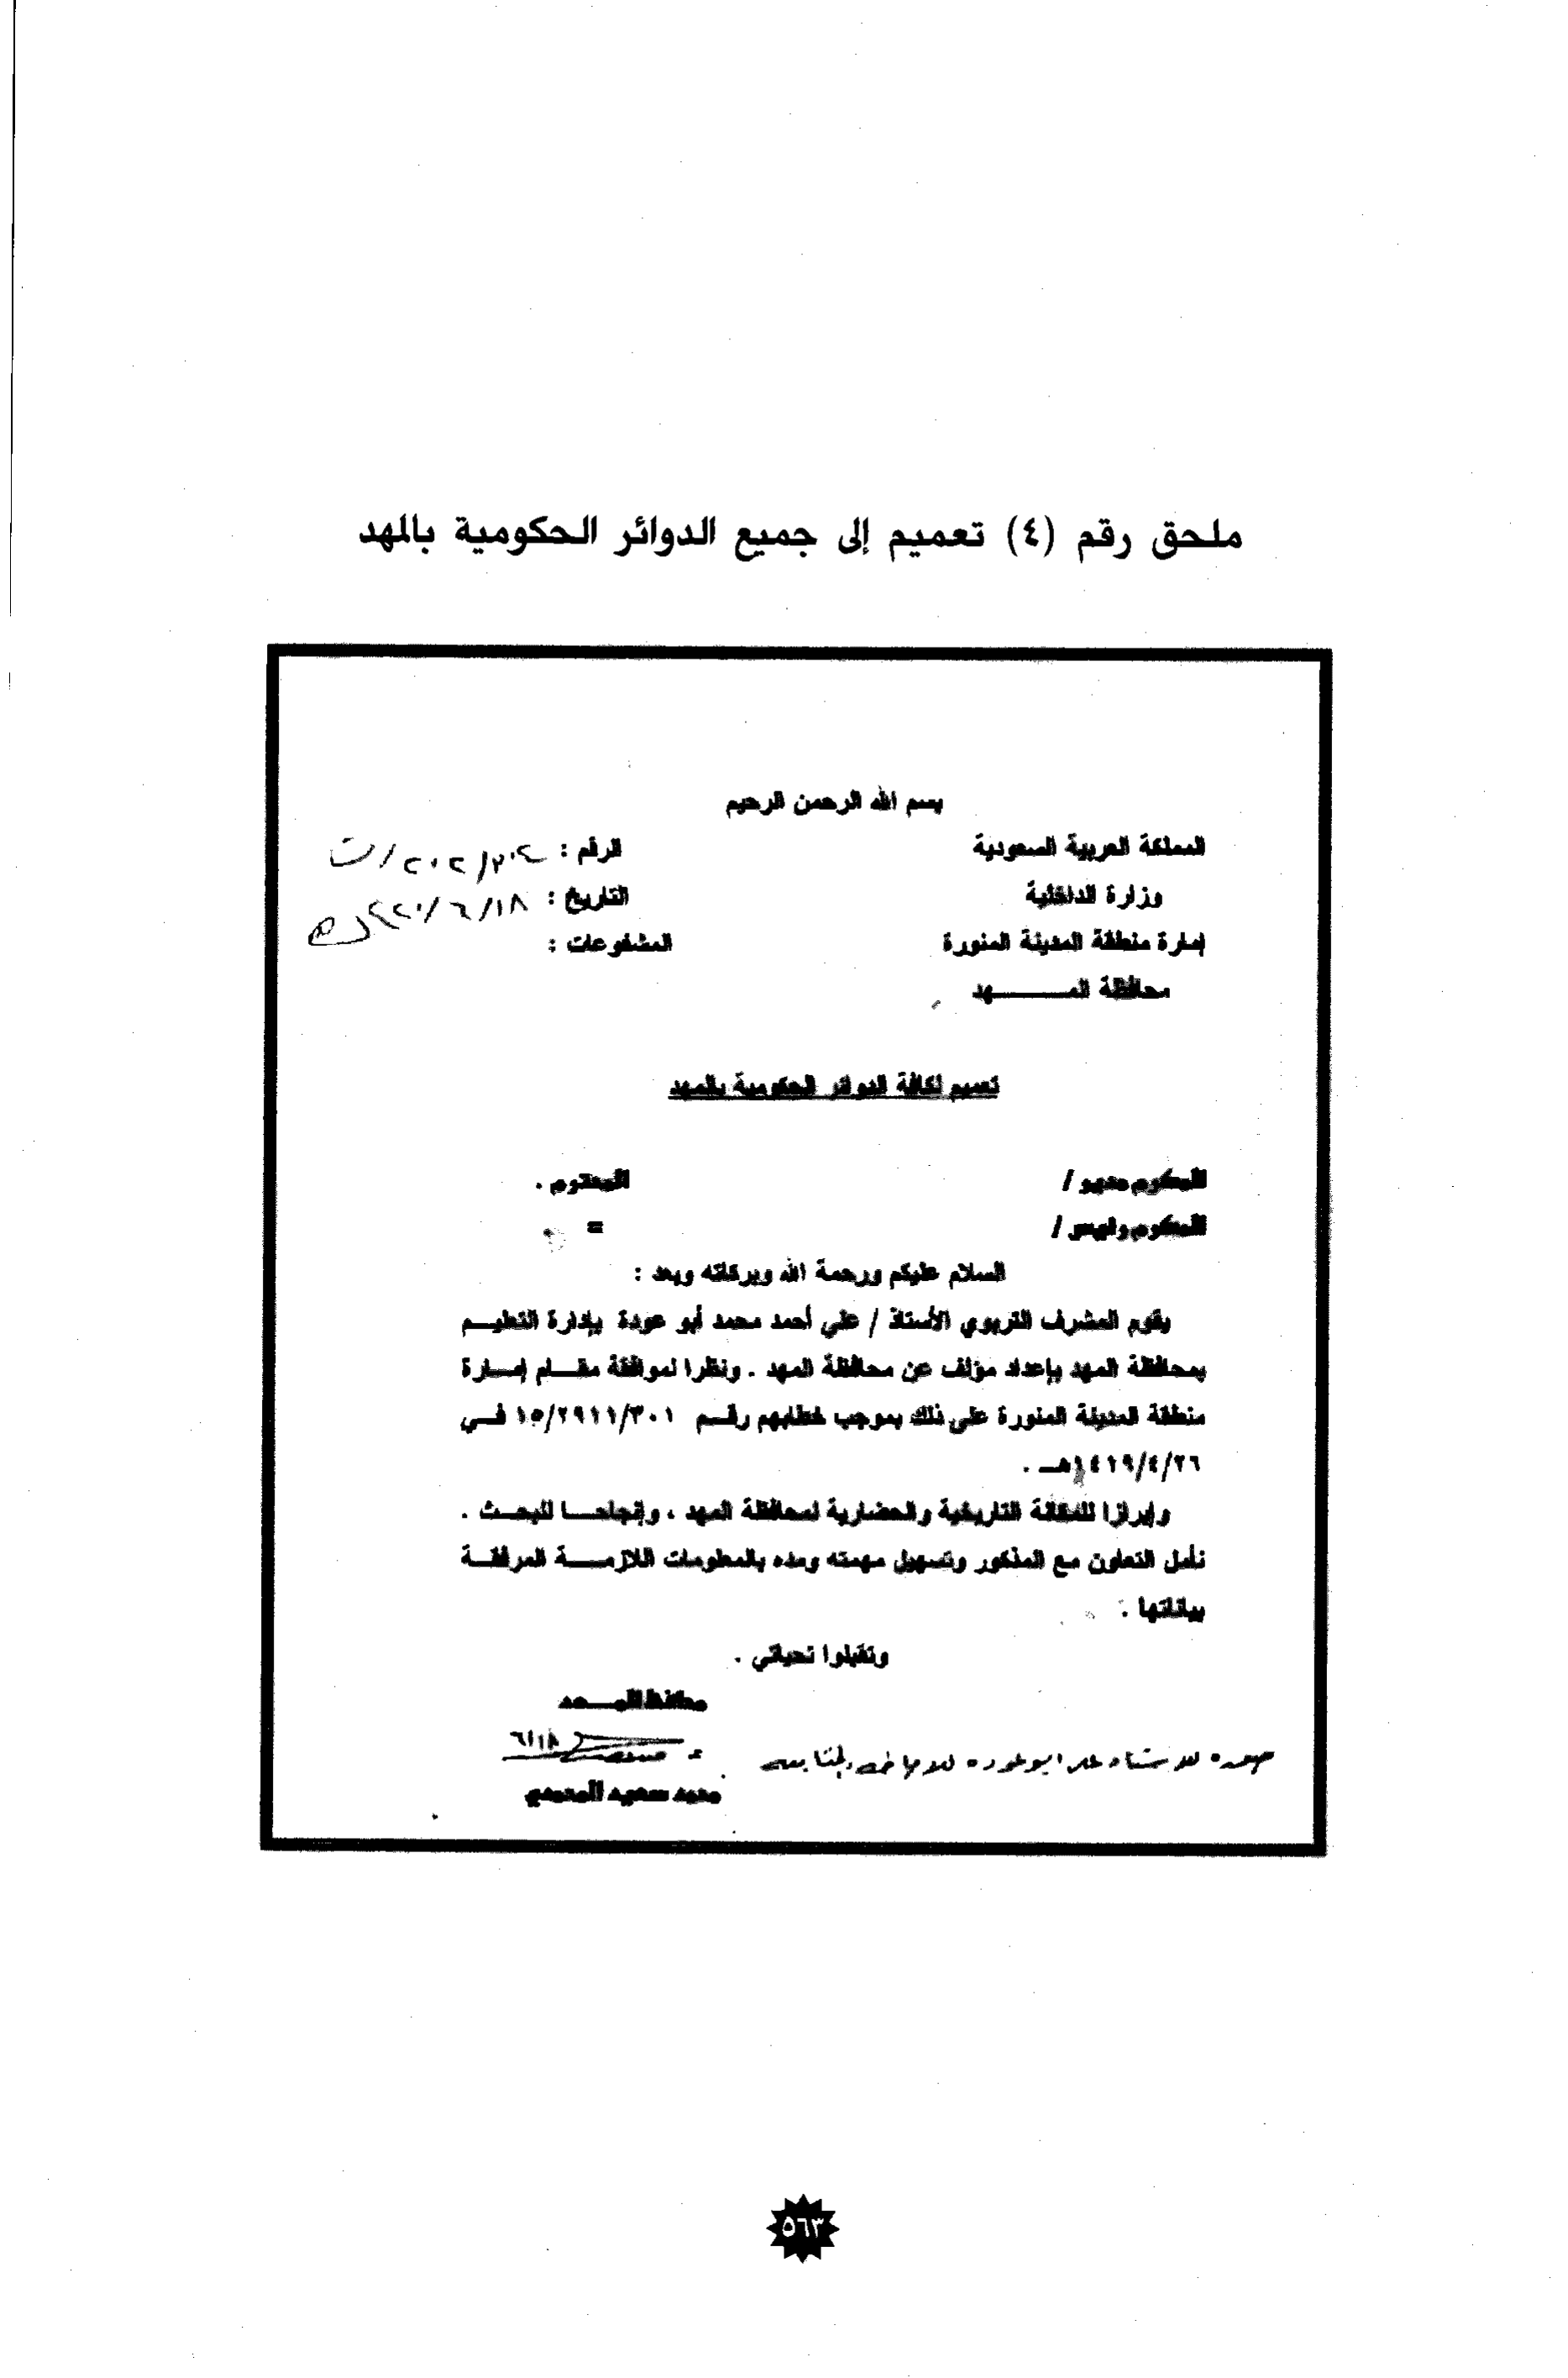 ملحق رقم (٤) تعميم إلى جميع الدوائر الحكومية بالمهد
بسم الله الرحمن الرحيم
المملكة العربية السعودية
الرقم :
وزارة الداخلية
التاريخ : ١٨/٦/
إمارة منطقة المدينة المنورة
المشفوعات :
محافظة المهد
تعميم لكافة الدوائر الحكومية بالمهد
المكرم مدير / المحترم .
المكرم رئيس / =
السلام عليكم ورحمة الله وبركاته وبعد :
يقوم المشرف التربوي الأستاذ / علي أحمد محمد أبو عودة بإدارة التعليم
بمحافظة المهد بإعداد مؤلف عن محافظة المهد . ونظرا لموافقة مقام إمارة
منطقة المدينة المنورة على ذلك بموجب خطابهم رقم ١٥/٢٩١١/٣٠١ في
١٤١٩/٤/٢٦هـ .
وإبرازا للمكانة التاريخية والحضارية لمحافظة المهد ، وإنجاحا للبحث .
نأمل التعاون مع المذكور وتسهيل مهمته ومده بالمعلومات اللازمة المرفقة
بياناتها .
وتقبلوا تحياتي .
محافظ المهد
٦/١٨
صوره للاستاذ علي ابو عوده
محمد سعيد المحمدي
٥٦٣